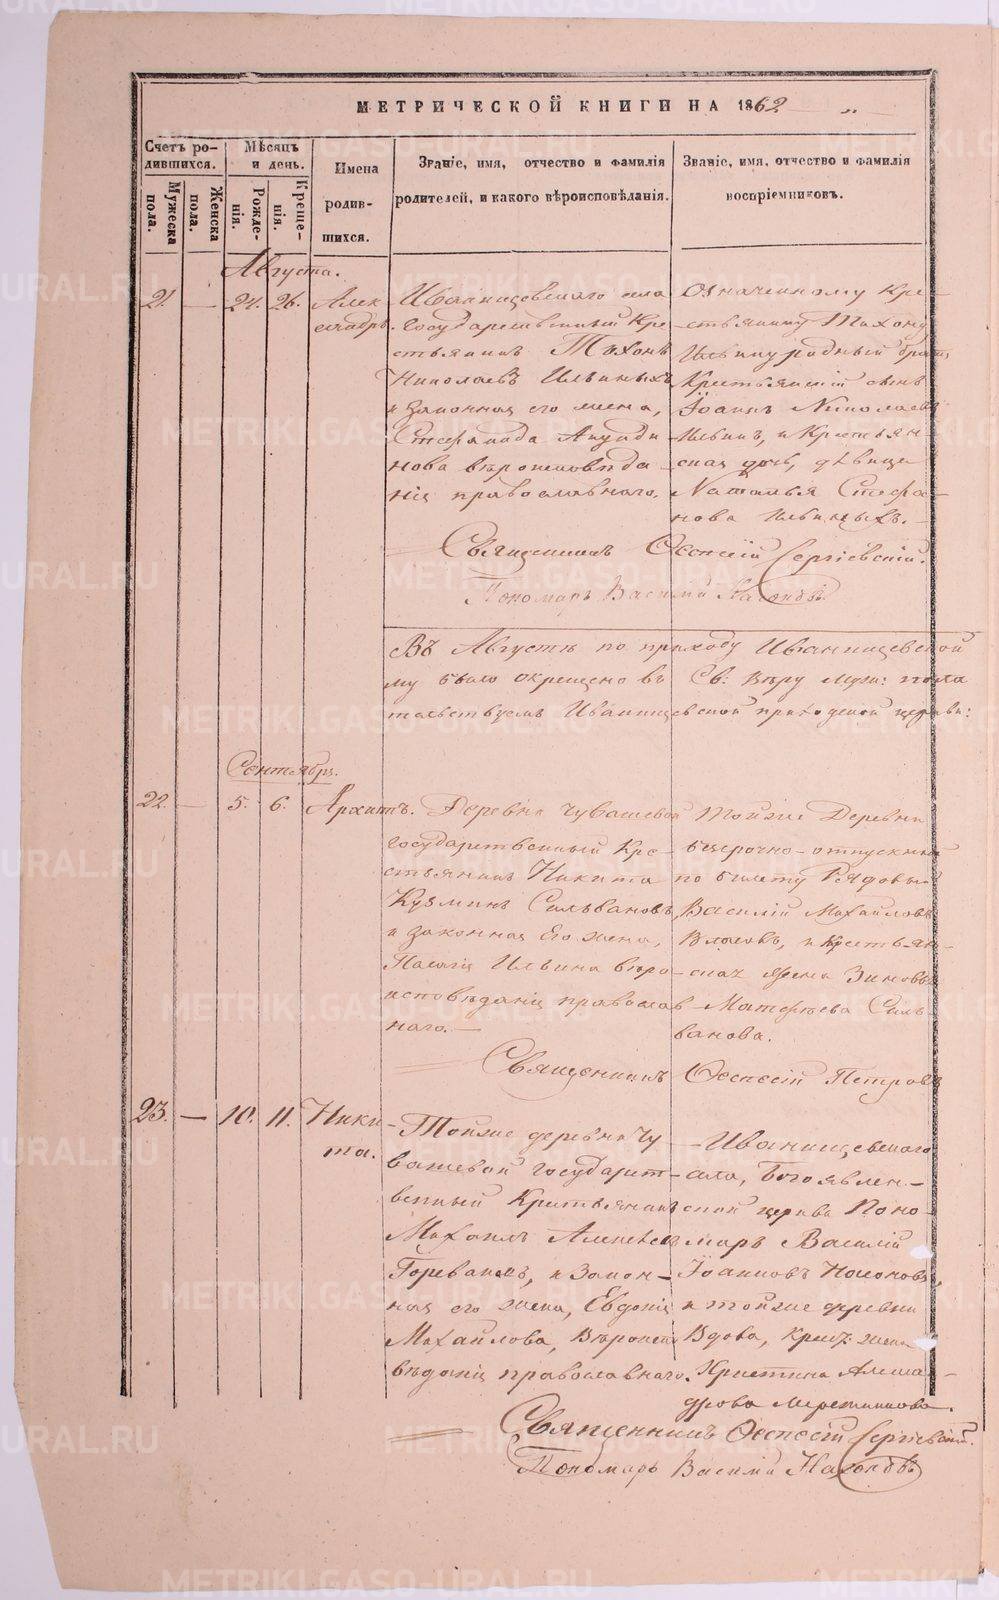 МЕТРИЧЕСКОЙ КНИГИ НА 1862
Счетъ ро-
дившихся.
Мужеска
пола.
Женска
пола.
Мѣсяцъ
и день.
Рожде-
нія.
Креще-
нія.
Имена
родив-
шихся.
Званіе, имя, отчество и фамилія
родителей, и какого вѣроисповѣданія.
Званіе, имя, отчество и фамилія
воспріемниковъ.
Августа.
21. — 24. 26.
Алек
сандръ.
Иванищевскаго села
государственный Кре
стьянинъ Тихонъ
Николаевъ Ильиныхъ
и законная его жена,
Стефанида
нова вѣроисповѣда
нія православнаго.
Означенному кре-
стьянину Тихону
Ильину родный братъ
Крестьянскій сынъ
Іоаннъ Николаевъ
Ильинъ, и Крестьян
ская дочь, дѣвица
Наталья Стефа-
нова Ильиныхъ.
Священникъ Сергіевскій.
Пономарь Василій
Въ Августѣ по приходу Иванищевской
му было окрещено въ Св: Вѣру
Иванищевской приходской церкви:
Сентября.
22. — 5. 6. Архипъ.
Деревни Чувашевой
государственный Кре-
стьянинъ Никита
Кузминъ Сильвановъ,
и законная Его жена,
Пелагія Ильина вѣро-
исповѣданія православ
наго. —
Тойже Деревни
безсрочно-отпускный
по билету Рядовый
Василій Михайловъ
Власовъ, и Крестьян-
ская жена Зиновья
Матфѣева Силь
ванова.
Священникъ Петровъ
23. — 10. 11. Ники
та.
Тойже деревни Чу
вашевой государст-
венный Крестьянинъ
Михаилъ Алексѣев
и Закон-
ная его жена, Евдокія
Михайлова, Вѣроиспо
вѣданія православнаго.
Иванищевскаго
села, Богоявлен-
ской церкви Поно-
марь Василій
Іоанновъ
и тойже деревни
Вдова, Крест: жена
Кристина Алекса-
дрова
Священникъ Сергіевскій.
Пономарь Василій
METRIKI.GASO-URAL.RU